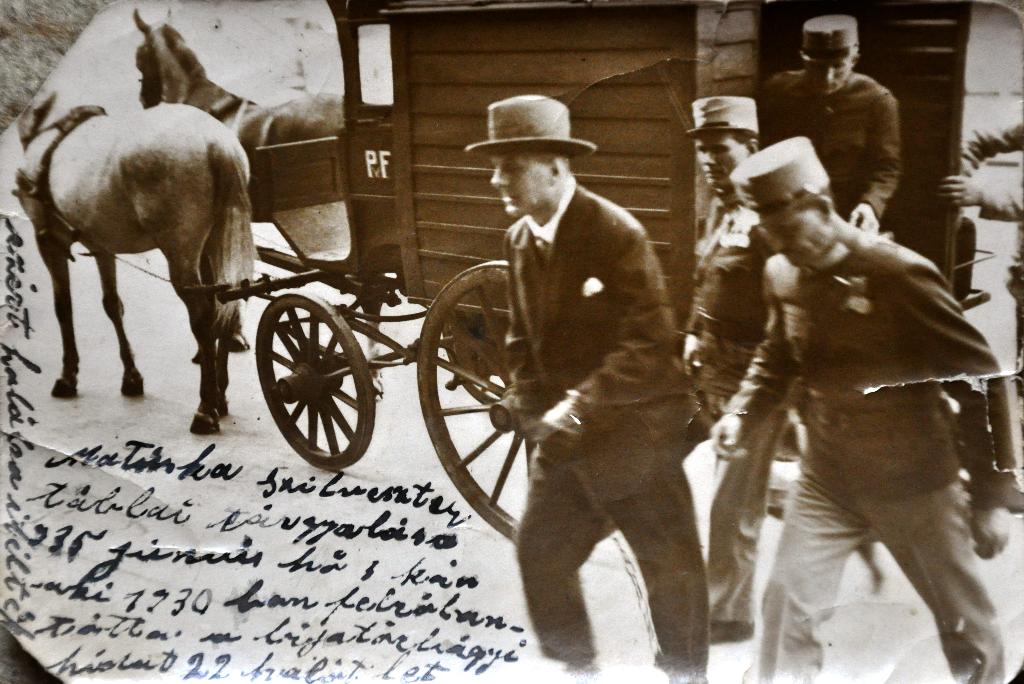 P F
Matuska Szilveszter
táblai tárgyalása
935 junius hó 5 kán
aki 1930 ban felrobban-
totta a biatorbágyi
hidat 22 halott let
Amiért halálra ítélték